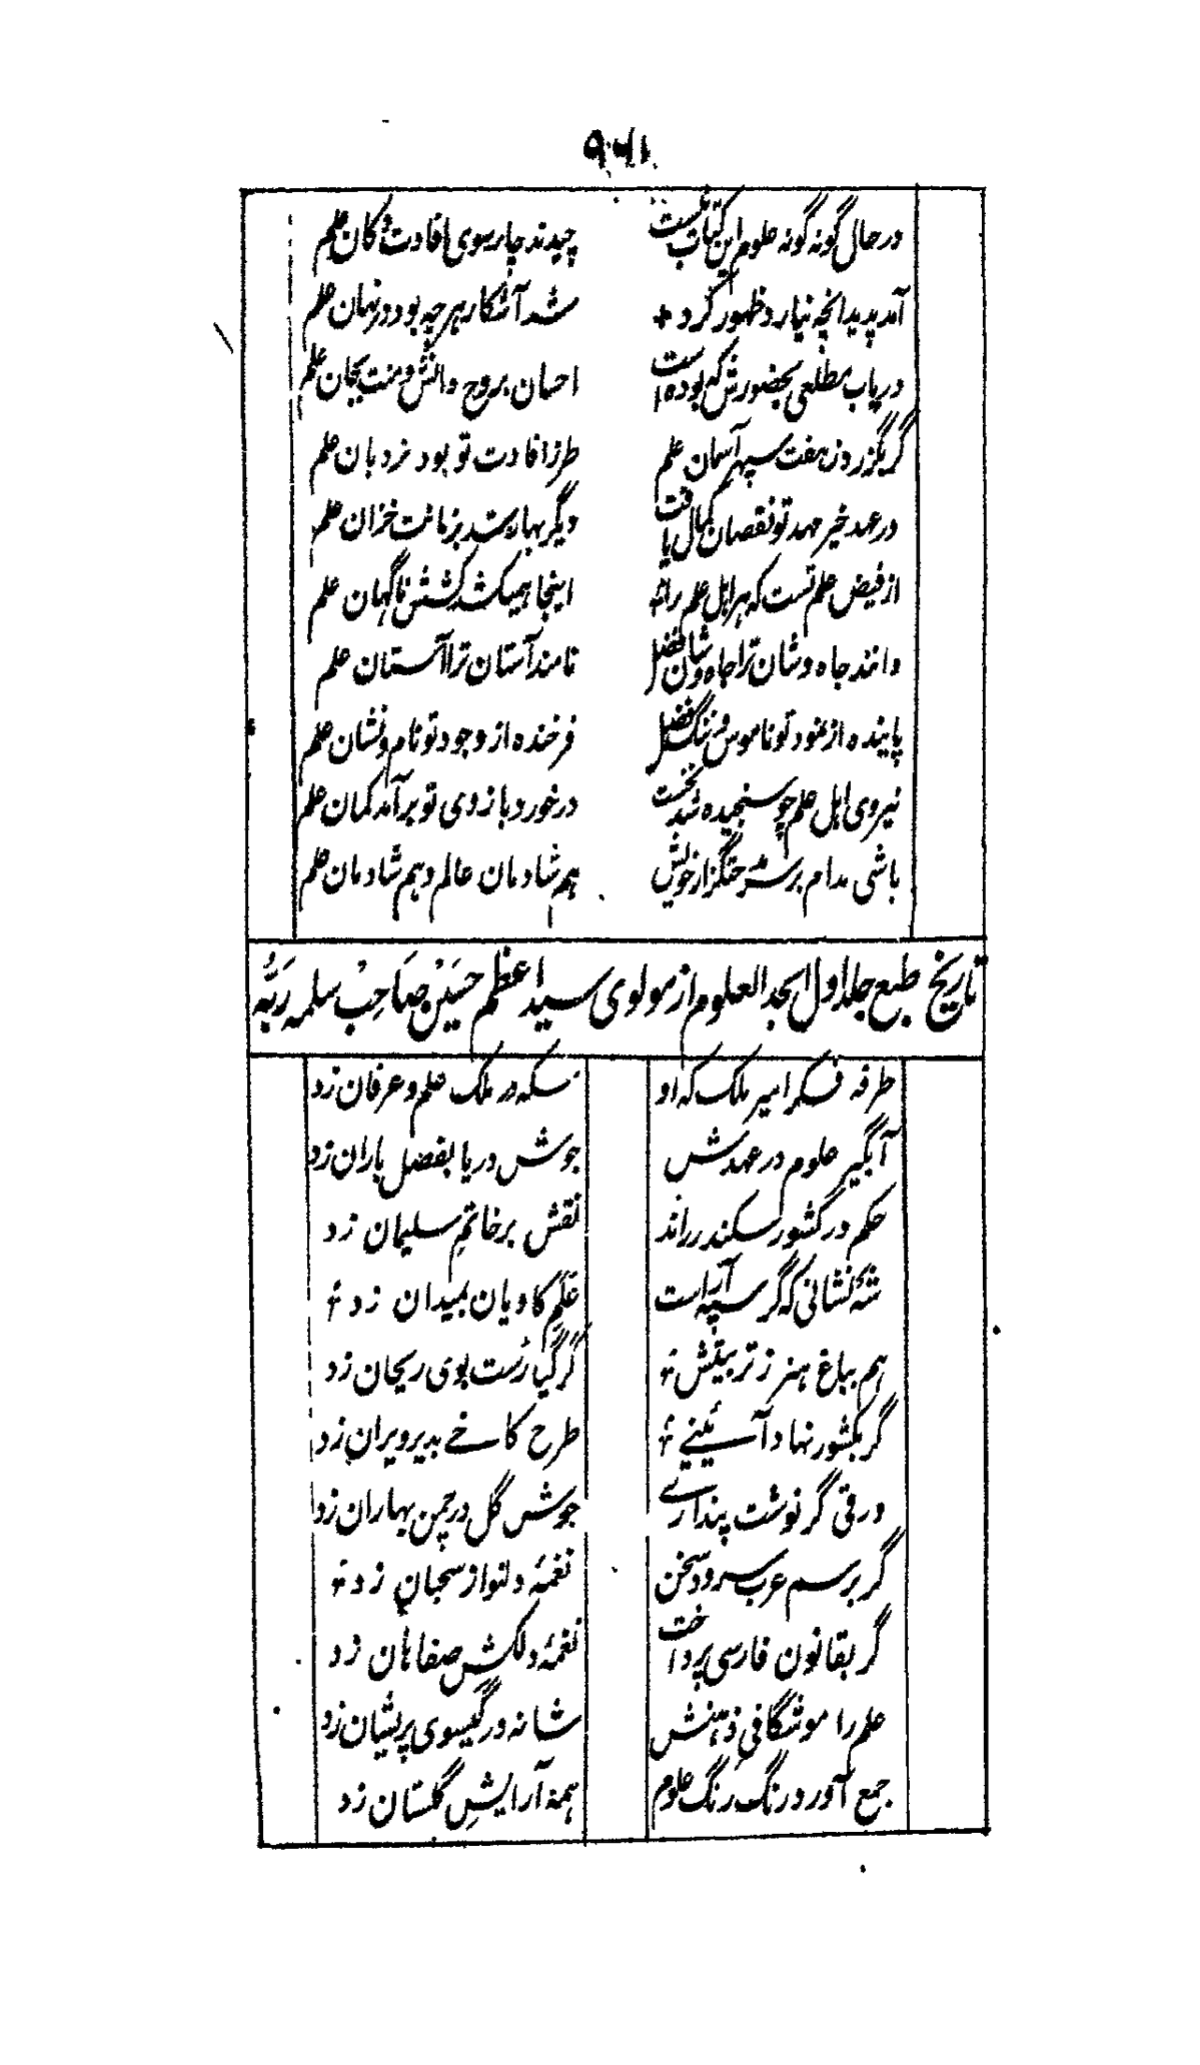 ۹۶۱
در حالی گونه گونه علوم این کتاب نیست چیدند چار سوی افادت دکان علم
آمد پدید انچه نیارد ظهور کرد شد آشکار هر چه بود در نهان علم
دریاب مطلعی بحضورش که بوده است احسان بروح دانش و منت بجان علم
گر بگزرد ز هفت سپهر آسمان علم طرز افادت تو بود نردبان علم
در عهد خیر مهد تو نقصان کمال یافت دیگر بهار شد بزمانت خزان علم
از فیض علم تست که هر اهل علم را اینجا همیکشد کشش ناگهان علم
دانند جاه و شان ترا جاه و شان فضل نامند آستان ترا آستان علم
پاینده از نمود تو ناموس و ننگ فضل فرخنده از وجود تو نام و نشان علم
نیروی اهل علم چو سنجیده شد نخست در خورد بازوی تو برآمد کمان علم
باشی مدام بر سر حقگزار خویش هم شادمان عالم و هم شادمان علم
تاریخ طبع جلد اول ابجد العلوم از مولوی سید اعظم حسین صاحب سلمه ربه
طرفه فکر امیر ملک که او سکه در ملک علم و عرفان زد
آبگیر علوم در عهدش جوش دریا بفضل باران زد
حکم در کشور سکندر راند نقش بر خاتم سلیمان زد
شه نشانی که گر سپه آراست علم کاویان بمیدان زد
هم بباغ هنر ز تربیتش گر گیا رست بوی ریحان زد
گر بکشور نهاد آئینے طرح کاخے بدیر ویران زد
ورقی گر نوشت پندارے جوش گل در چمن بهاران زد
گر برسم عرب سرود سخن نغمهٔ دلنواز سحبان زد
گر بقانون فارسی پرداخت نغمهٔ دلکش صفاهان زد
علم را موشگافی ذهنش شانه در گیسوی پریشان زد
جمع آورد رنگ رنگ علوم همه آرایش گلستان زد